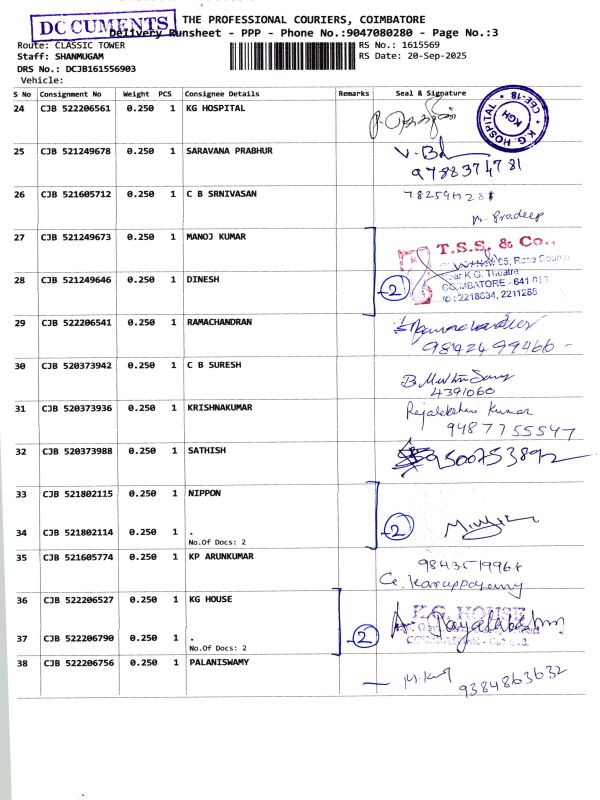 DOCUMENTS
THE PROFESSIONAL COURIERS, COIMBATORE
Delivery Runsheet - PPP - Phone No.:9047080280 - Page No.:3
Route: CLASSIC TOWER
RS No.: 1615569
Staff: SHANMUGAM
RS Date: 20-Sep-2025
DRS No.: DCJB161556903
Vehicle:
S No Consignment No Weight PCS Consignee Details Remarks Seal & Signature
24 CJB 522206561 0.250 1 KG HOSPITAL
K.G. HOSPITAL * CBE-18 *
KGH
25 CJB 521249678 0.250 1 SARAVANA PRABHUR
9788374781
26 CJB 521605712 0.250 1 C B SRNIVASAN
Pradeep
27 CJB 521249673 0.250 1 MANOJ KUMAR
T.S.S. & Co.,
Race Course
Near K.G. Theatre
28 CJB 521249646 0.250 1 DINESH
2
COIMBATORE - 641 018
2218634, 2211288
29 CJB 522206541 0.250 1 RAMACHANDRAN
9842499466
30 CJB 520373942 0.250 1 C B SURESH
4391060
31 CJB 520373936 0.250 1 KRISHNAKUMAR
Kumar
9487755547
32 CJB 520373988 0.250 1 SATHISH
9500753892
33 CJB 521802115 0.250 1 NIPPON
2
34 CJB 521802114 0.250 1 .
No.Of Docs: 2
35 CJB 521605774 0.250 1 KP ARUNKUMAR
36 CJB 522206527 0.250 1 KG HOUSE
K.G. HOUSE
2
37 CJB 522206790 0.250 1 .
No.Of Docs: 2
38 CJB 522206756 0.250 1 PALANISWAMY
9384863632